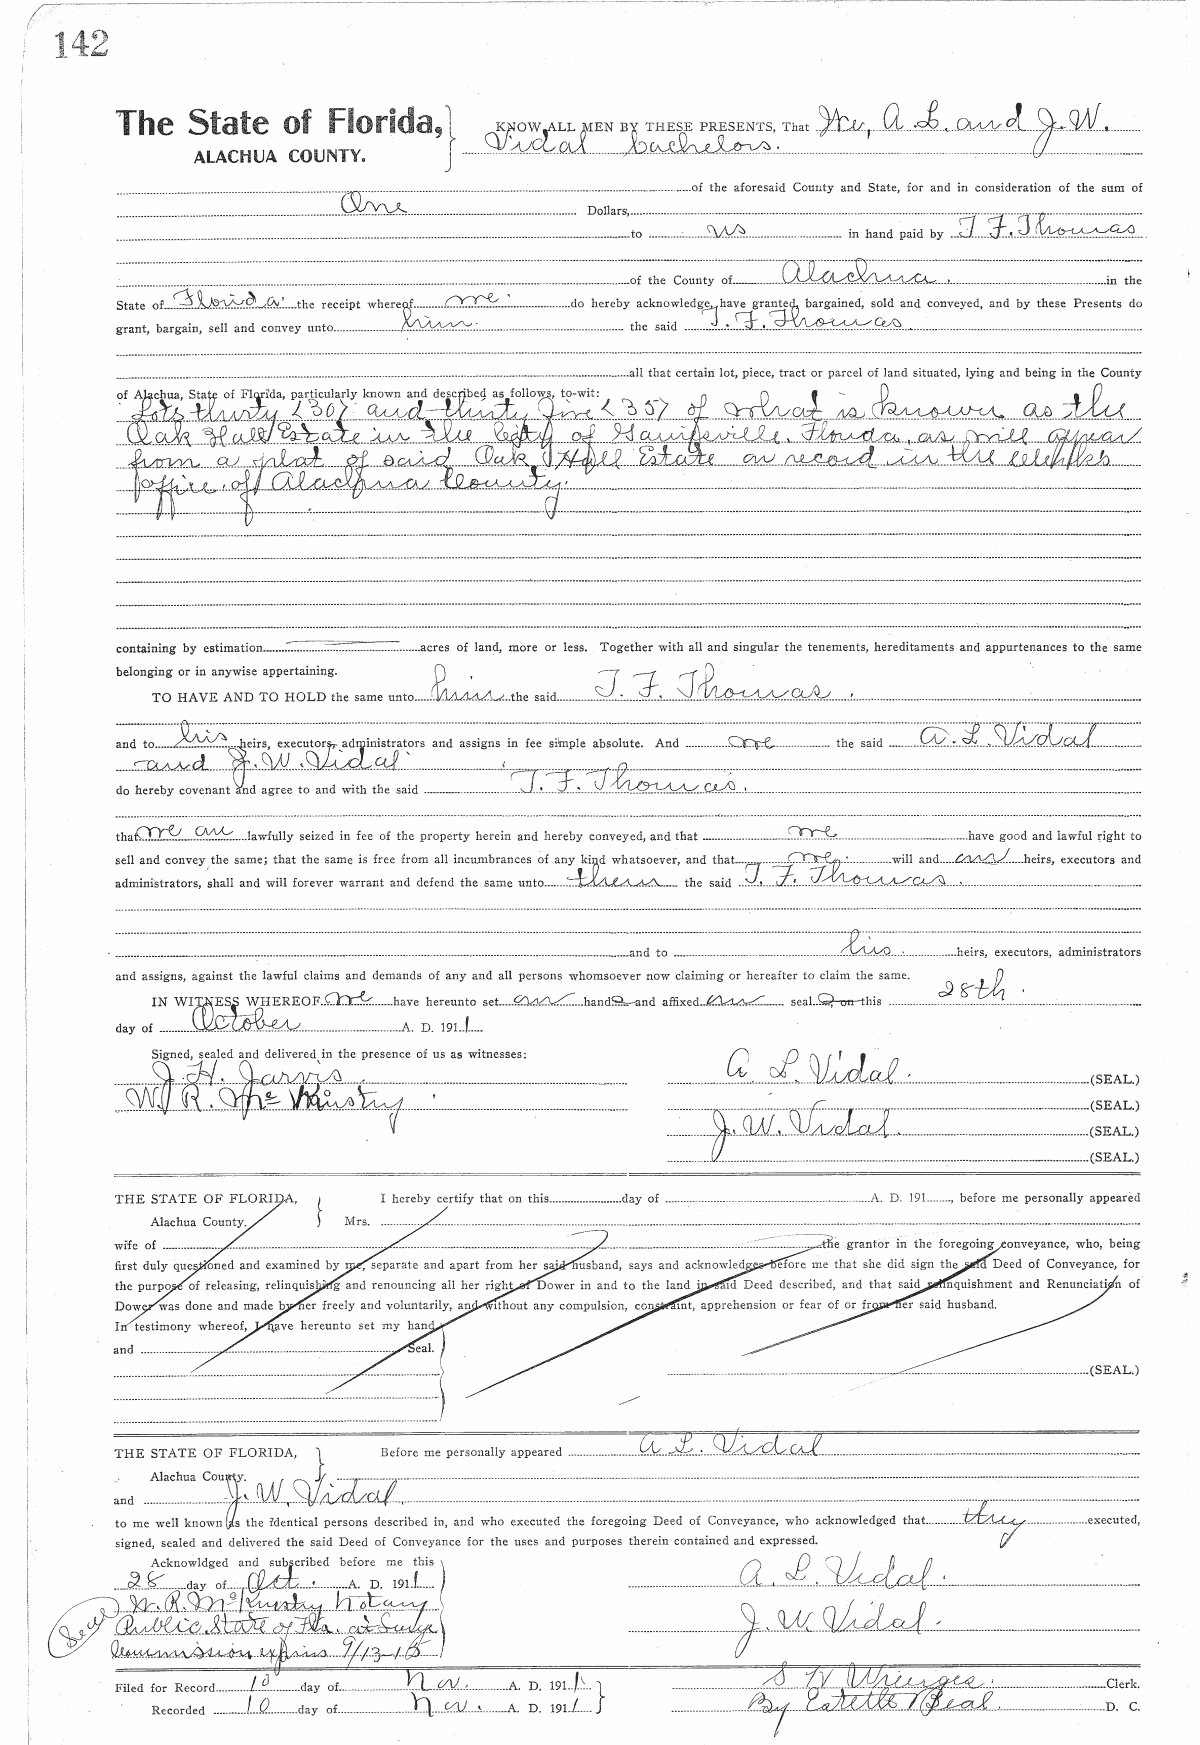 142
The State of Florida, KNOW ALL MEN BY THESE PRESENTS, That We, A. L. and J. W.
ALACHUA COUNTY. Vidal bachelors.
of the aforesaid County and State, for and in consideration of the sum of
One Dollars,
to us in hand paid by T. F. Thomas
of the County of Alachua. in the
State of Florida the receipt whereof we do hereby acknowledge, have granted, bargained, sold and conveyed, and by these Presents do
grant, bargain, sell and convey unto him the said T. F. Thomas
all that certain lot, piece, tract or parcel of land situated, lying and being in the County
of Alachua, State of Florida, particularly known and described as follows, to-wit:
Lots thirty (30) and thirty five (35) of what is known as the
Oak Hall Estate in the City of Gainesville, Florida, as will appear
from a plat of said Oak Hall Estate on record in the clerks
office of Alachua County.
containing by estimation acres of land, more or less. Together with all and singular the tenements, hereditaments and appurtenances to the same
belonging or in anywise appertaining.
TO HAVE AND TO HOLD the same unto him the said T. F. Thomas.
and to his heirs, executors, administrators and assigns in fee simple absolute. And we the said A. L. Vidal
and J. W. Vidal
do hereby covenant and agree to and with the said T. F. Thomas.
that we are lawfully seized in fee of the property herein and hereby conveyed, and that we have good and lawful right to
sell and convey the same; that the same is free from all incumbrances of any kind whatsoever, and that we will and our heirs, executors and
administrators, shall and will forever warrant and defend the same unto them the said T. F. Thomas.
and to his heirs, executors, administrators
and assigns, against the lawful claims and demands of any and all persons whomsoever now claiming or hereafter to claim the same.
IN WITNESS WHEREOF we have hereunto set our hands and affixed our seals on this 28th.
day of October A. D. 1911.
Signed, sealed and delivered in the presence of us as witnesses:
J. H. Jarvis A. L. Vidal. (SEAL.)
W. R. McKinstry (SEAL.)
J. W. Vidal. (SEAL.)
(SEAL.)
THE STATE OF FLORIDA, I hereby certify that on this day of A. D. 191 , before me personally appeared
Alachua County. Mrs.
wife of the grantor in the foregoing conveyance, who, being
first duly questioned and examined by me, separate and apart from her said husband, says and acknowledges before me that she did sign the said Deed of Conveyance, for
the purpose of releasing, relinquishing and renouncing all her right of Dower in and to the land in said Deed described, and that said relinquishment and Renunciation of
Dower was done and made by her freely and voluntarily, and without any compulsion, constraint, apprehension or fear of or from her said husband.
In testimony whereof, I have hereunto set my hand
and Seal.
(SEAL.)
THE STATE OF FLORIDA, Before me personally appeared A. L. Vidal
Alachua County.
and J. W. Vidal.
to me well known as the identical persons described in, and who executed the foregoing Deed of Conveyance, who acknowledged that they executed,
signed, sealed and delivered the said Deed of Conveyance for the uses and purposes therein contained and expressed.
Acknowldged and subscribed before me this
28 day of Oct. A. D. 1911 A. L. Vidal.
W. R. McKinstry Notary
Seal Public State of Fla. at Large J. W. Vidal.
Commission expires 9/13-15
Filed for Record 10 day of Nov. A. D. 1911 S H Wienges. Clerk.
Recorded 10 day of Nov. A. D. 1911 By Estelle Beal. D. C.